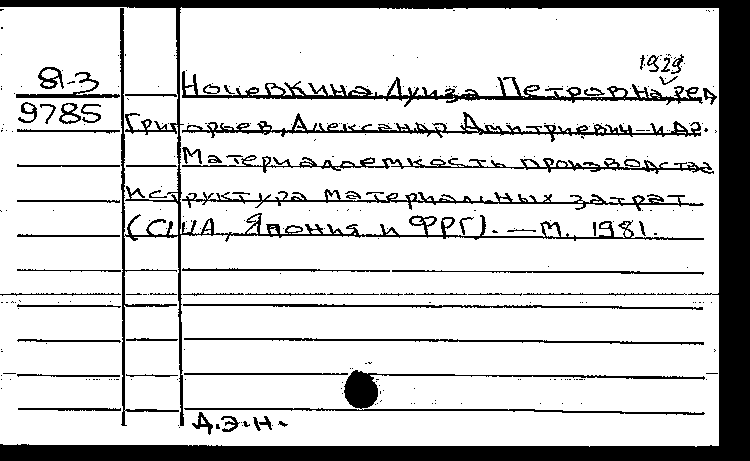 1929
81-3
Ноцевкина, Луиза Петровна, ред
9785
Григорьев, Александр Дмитриевич и др.
Материалоемкость производства
и структура материальных затрат
(США, Япония и ФРГ). — М., 1981.
Д.Э.Н.